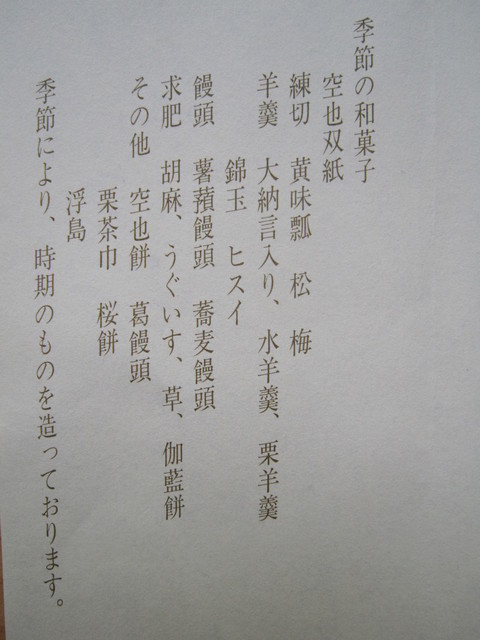 季節の和菓子
空也双紙
練切　黄味瓢　松　梅
羊羹　大納言入り、水羊羹、栗羊羹
錦玉　ヒスイ
饅頭　薯蕷饅頭　蕎麦饅頭
求肥　胡麻、うぐいす、草、伽藍餅
その他　空也餅　葛饅頭
栗茶巾　桜餅
浮島
季節により、時期のものを造っております。